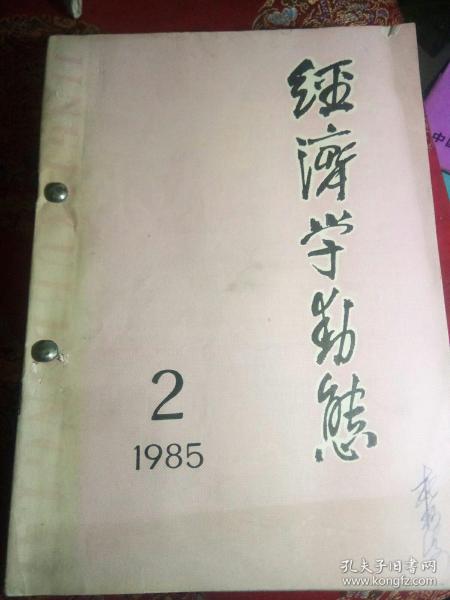 經濟学動態
2
1985
中国
孔夫子旧书网
www.kongfz.com